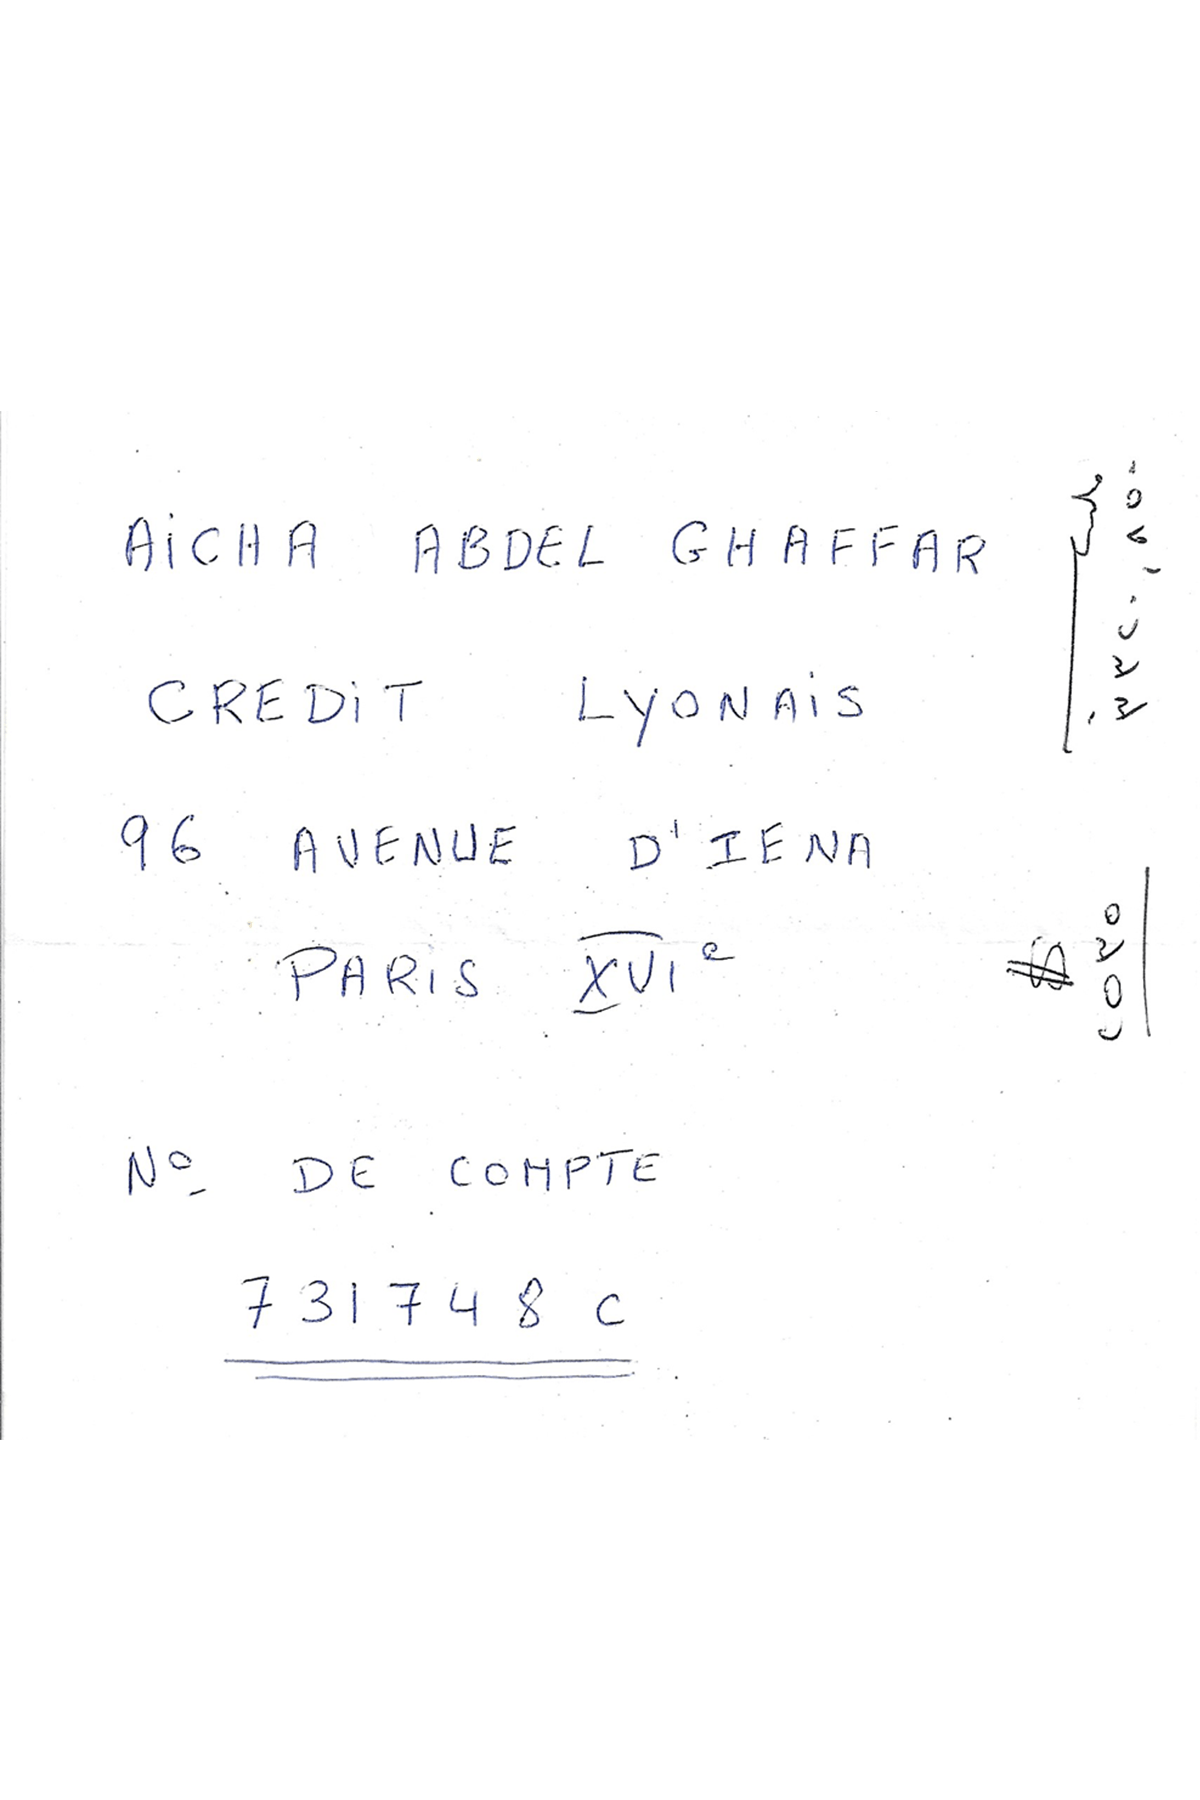 AiCHA ABDEL GHAFFAR
CREDiT LyONAiS
96 AVENUE D'IENA
PARiS XVIe
Nº DE COMPTE
731748 C